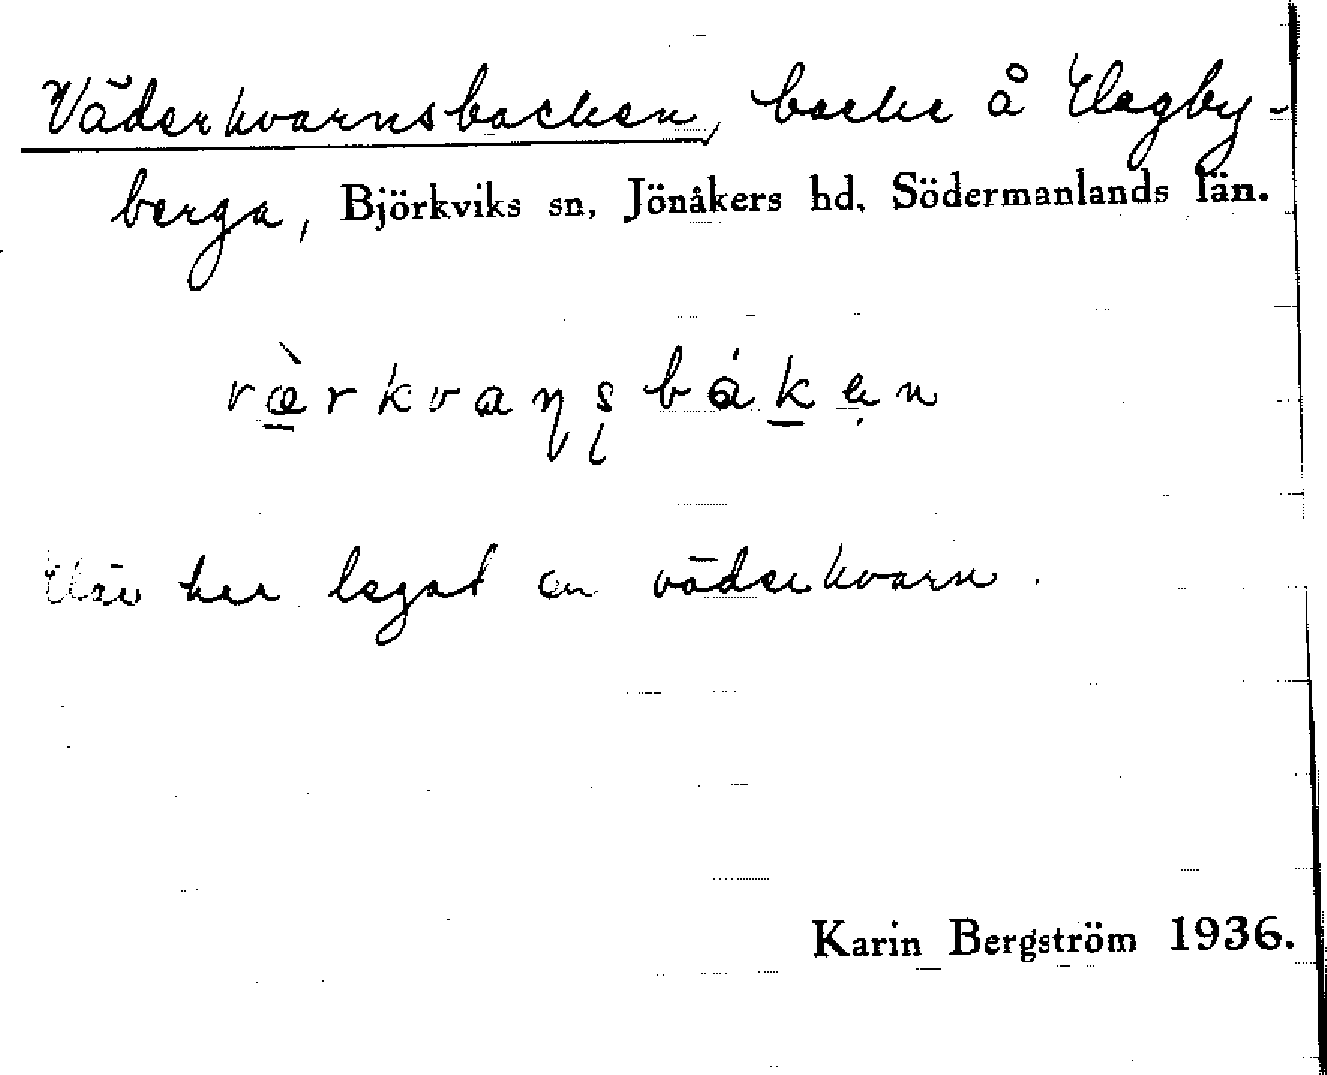 Väderkvarnsbacken, backe å Hagby-
berga, Björkviks sn, Jönåkers hd, Södermanlands län.
væ̀rkvaɳʂbákən
Här har legat en väderkvarn.
Karin Bergström 1936.